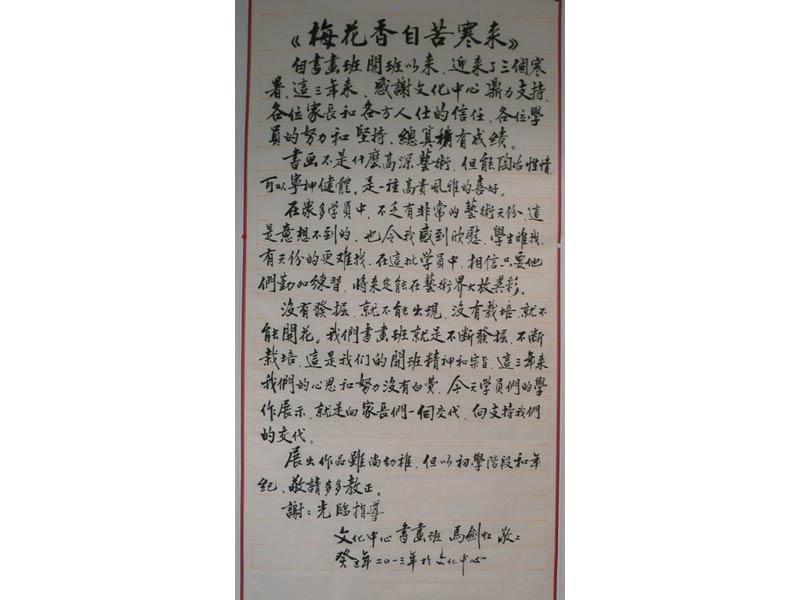 《梅花香自苦寒来》
自書畫班開班以來、近來了三個寒
暑、這三年来、感謝文化中心鼎力支持、
各位家長和各方人仕的信任、各位學
員的努力和堅持、總算積有成績。
書画不是什麽高深藝術、但能陶冶性情
可以寧神健體、是一種高貴風雅的喜好。
在衆多学員中、不乏有非常的藝術天份、這
是意想不到的、也令我感到欣慰、學生难找、
有天份的更难找、在這批学員中、相信只要他
們勤加練習、將來定能在藝術界大放異彩。
沒有發掘、就不能出現、沒有栽培、就不
能開花、我們書畫班就是不斷發掘、不斷
栽培、這是我们的開班精神和宗旨、這三年来
我們的心思和努力沒有白費、今天学員們的學
作展示、就是向家長們一個交代、向支持我們
的交代。
展出作品雖尚幼稚、但以初學階段和年
紀、敬請多多教正。
謝：光臨指導
文化中心書畫班 馬劍虹 敬上
癸巳年二〇一三年於文化中心